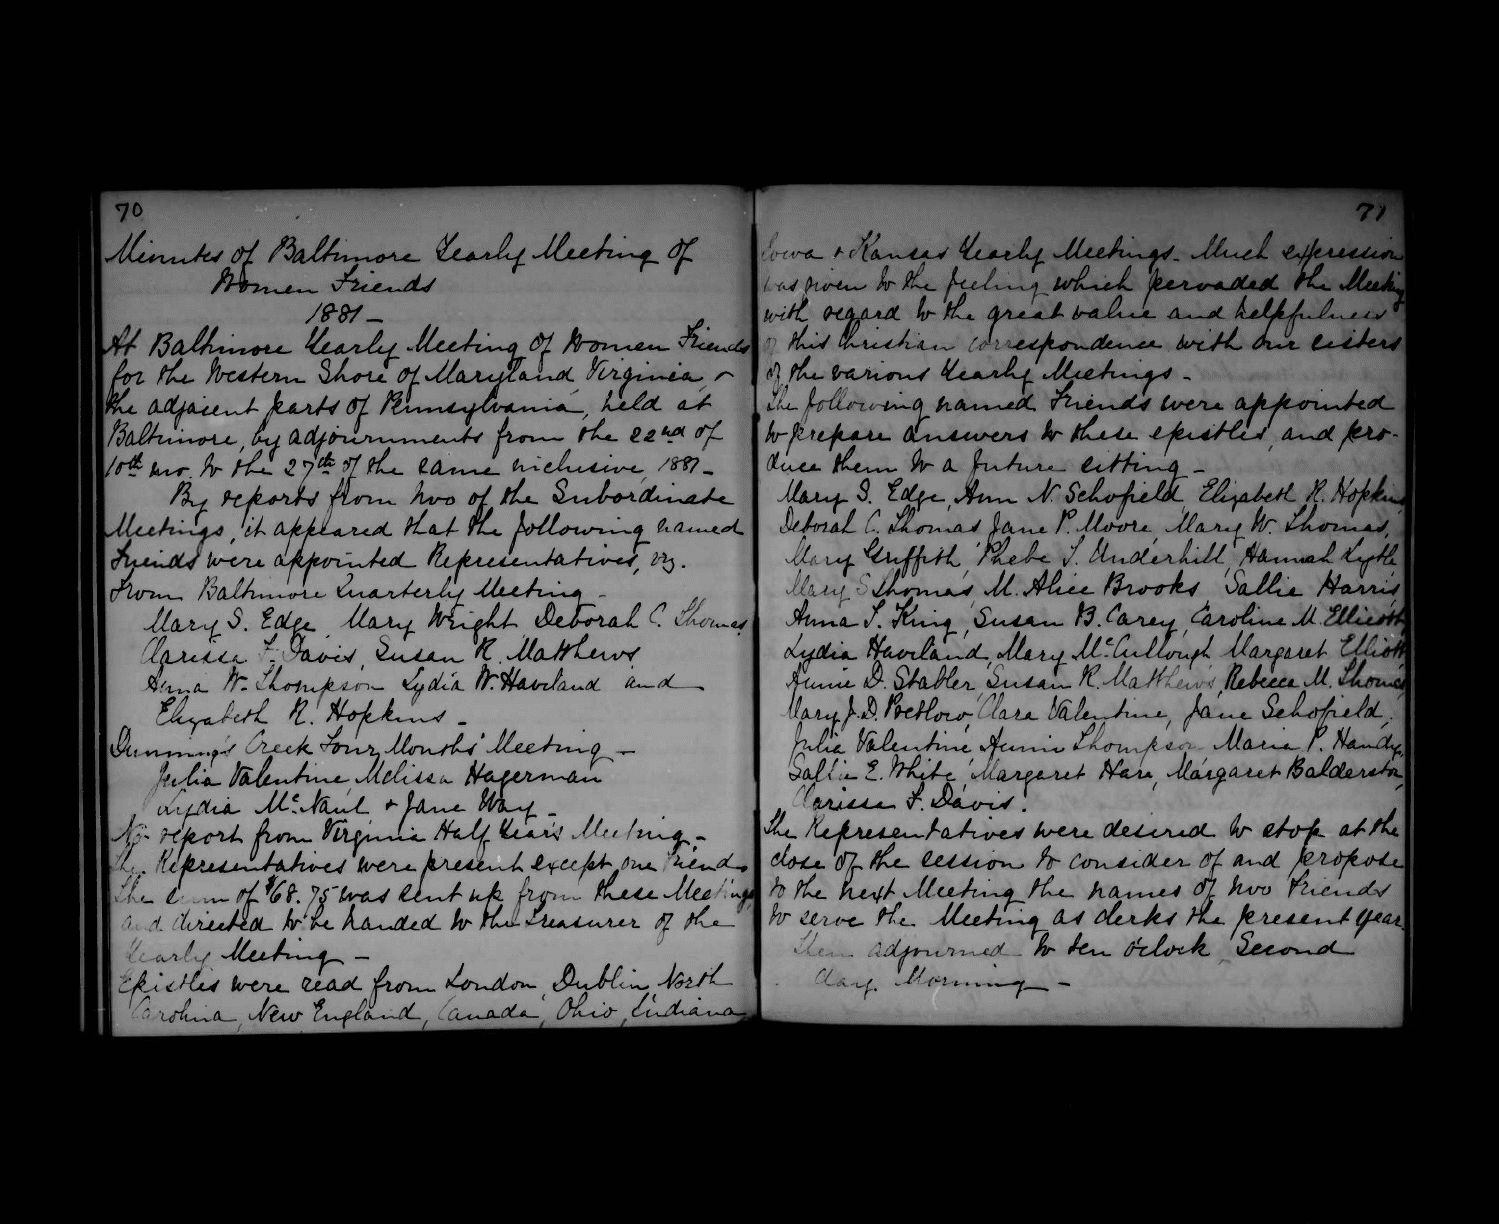 70
Minutes of Baltimore Yearly Meeting of
Women Friends
1881 -
At Baltimore Yearly Meeting of Women Friends
for the Western Shore of Maryland, Virginia, &
the adjacent parts of Pennsylvania, held at
Baltimore, by adjournments from the 22nd of
10th mo. to the 27th of the same inclusive, 1881 -
By reports from two of the Subordinate
Meetings, it appeared that the following named
Friends were appointed Representatives, viz.
From Baltimore Quarterly Meeting -
Mary S. Edge, Mary Wright Deborah C. Thomas,
Clarissa F. Davis, Susan R. Matthews
Anna W. Thompson Lydia W. Haviland and
Elizabeth R. Hopkins -
Dunning's Creek Four Months' Meeting -
Julia Valentine, Melissa Hagerman
Lydia McNaul & Jane Way -
No report from Virginia Half Year's Meeting -
The Representatives were present except one Friend
The sum of $68.75 was sent up from these Meetings,
and directed to be handed to the Treasurer of the
Yearly Meeting -
Epistles were read from London, Dublin, North
Carolina, New England, Canada, Ohio, Indiana
71
Iowa & Kansas Yearly Meetings - Much expression
was given to the feeling which pervaded the Meeting
with regard to the great value and helpfulness
of this Christian correspondence with our sisters
of the various Yearly Meetings -
The following named Friends were appointed
to prepare answers to these epistles, and pro-
duce them to a future sitting -
Mary S. Edge, Ann N. Schofield, Elizabeth R. Hopkins,
Deborah C. Thomas, Jane P. Moore, Mary W. Thomas,
Mary Griffith, Phebe S. Underhill, Hannah Lytle,
Mary S Thomas, M. Alice Brooks, Sallie Harris,
Anna T. King, Susan B. Carey, Caroline M. Ellicott,
Lydia Haviland, Mary McCullough Margaret Elliott,
Annie D. Stabler, Susan R. Matthews, Rebecca M. Thomas,
Mary J. D. Clara Valentine, Jane Schofield,
Julia Valentine, Annie Thompson Maria P. Handy,
Sallie E. White, Margaret Hare, Margaret Balderston,
Clarissa F. Davis.
The Representatives were desired to stop at the
close of the session to consider of and propose
to the next Meeting the names of two Friends
to serve the Meeting as clerks the present year.
Then adjourned to ten o'clock Second
day Morning -